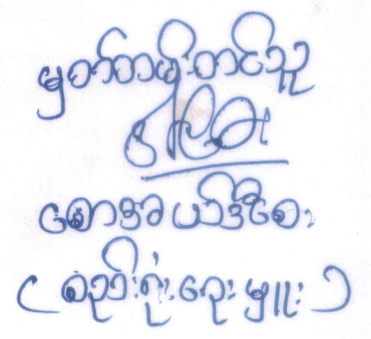 မှတ်တမ်းတင်သူ
စောအယ်ဒီစေး
( စည်းရုံးရေးမှူး )